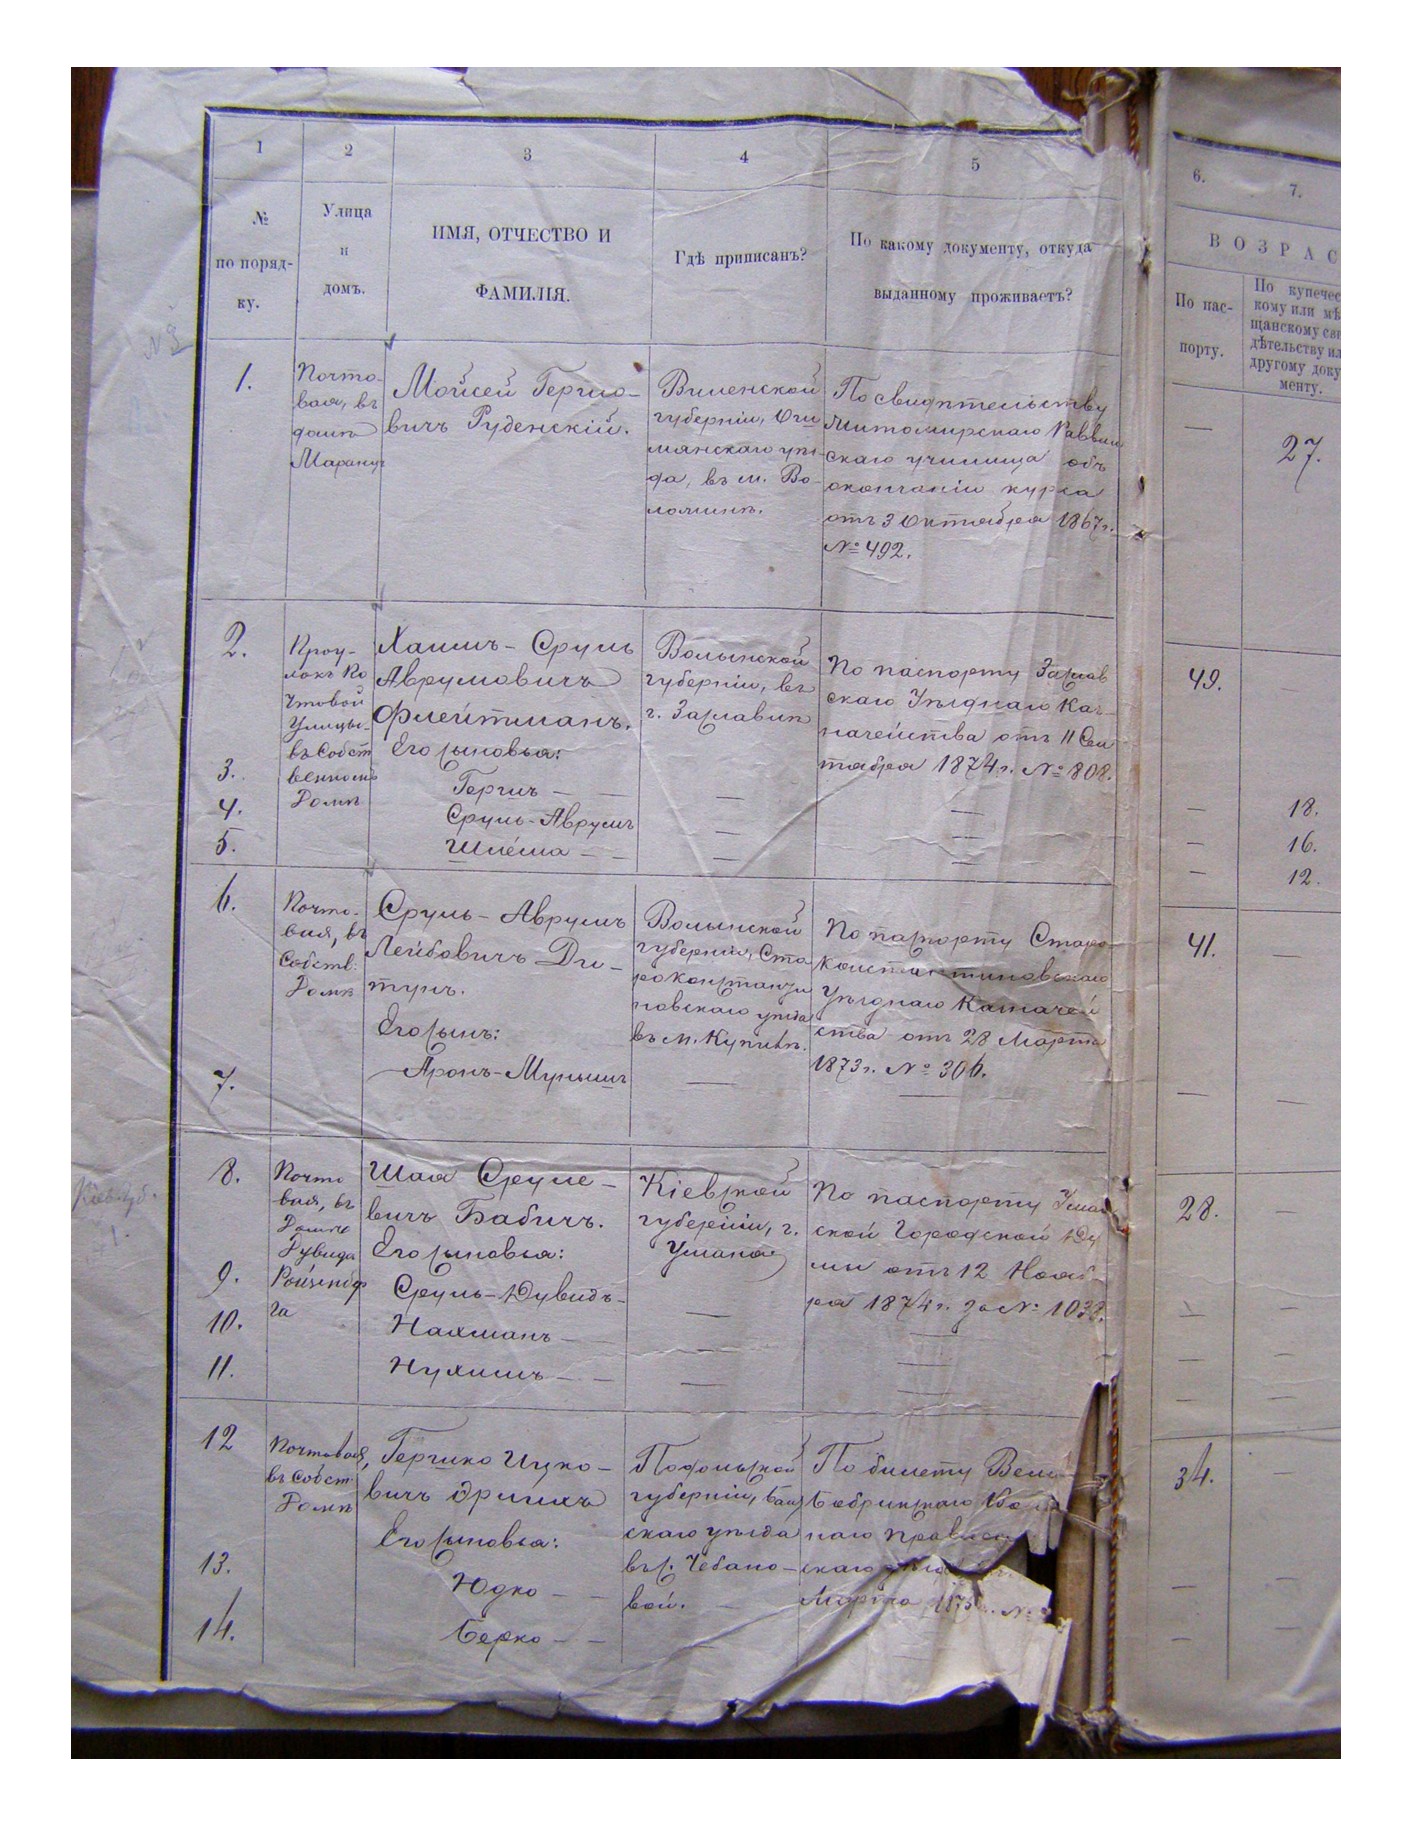 1
2
3
4
5
6.
7.
№
по поряд-
ку.
Улица
и
домъ.
ИМЯ, ОТЧЕСТВО И
ФАМИЛІЯ.
Гдѣ приписанъ?
По какому документу, откуда
выданному проживаетъ?
ВОЗРАС
По пас-
порту.
По купечес
кому или мѣ
щанскому сви
дѣтельству ил
другому доку
менту.
1.
Почто-
вая, въ
домѣ
Моисей Гершо-
вичъ Руденскій.
Виленской
губерніи, Ош
мянскаго уѣз-
да, въ м. Во-
ложинѣ.
По свидѣтельству
Житомирскаго Раввин
скаго училища объ
окончаніи курса
отъ 3 Октября 1867 г.
№ 492.
—
27.
2.
Проу-
локъ По
чтовой
Улицы-
въ Собст
венномъ
Домѣ
Хаимъ-Сруль
Аврумовичъ
Флейтманъ.
Его сыновья:
Волынской
губерніи, въ
г. Заславлѣ
По паспорту Заслав
скаго Уѣзднаго Каз-
начейства отъ 11 Сен
тября 1874 г. № 808.
49.
—
3.
Гершъ — —
—
—
—
18.
4.
Сруль-Аврумъ
—
—
—
16.
5.
Шлёма — —
—
—
—
12.
6.
Почто-
вая, въ
Собств.
Домѣ
Сруль-Аврумъ
Лейбовичъ Ди-
тунъ.
Его сынъ:
Волынской
губерніи, Ста
роконстанти
новскаго уѣзда
въ м. Купинѣ.
По паспорту Старо-
константиновскаго
Уѣзднаго Казначей
ства отъ 28 Марта
1873 г. № 306.
41.
—
7.
Аронъ-Муньишъ
—
—
—
—
8.
Почто
вая, въ
Домѣ
Дувида
Шая Сруле-
вичъ Бабичъ.
Его сыновья:
Кіевской
губерніи, г.
Умана
По паспорту Уман
ской Городской Ду
мы отъ 12 Нояб-
ря 1874 г. за № 1033.
28.
—
9.
Сруль-Дувидъ-
—
—
—
—
10.
Нахманъ — —
—
—
—
—
11.
Нухимъ — —
—
—
—
—
12
Почтовая,
въ Собст.
Домѣ
Гершко Ицко-
вичъ
Его сыновья:
Подольской
губерніи,
скаго уѣзда
въ с. Чебано-
вой.
По билету
наго
скаго
Марта 187
34.
—
13.
Юдко — —
—
—
14.
Берко — —
—
—
—